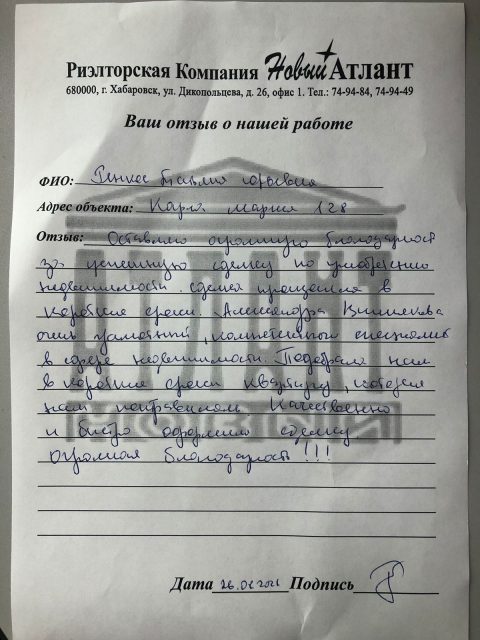 Риэлторская Компания Новый Атлант
680000, г. Хабаровск, ул. Дикопольцева, д. 26, офис 1. Тел.: 74-94-84, 74-94-49
Ваш отзыв о нашей работе
ФИО: Юрьевна
Адрес объекта: Карла маркса 128
Отзыв: Оставляю огромную благодарность
за успешную сделку по приобретению
недвижимости. сделка прошла в
короткие сроки. Александра
очень грамотный, компетентный специалист
в сфере недвижимости. Подобрала нам
в короткие сроки квартиру, которая
нам понравилась. Качественно
и быстро оформили сделку
огромная благодарность!!!
Дата 26.02.2021 Подпись